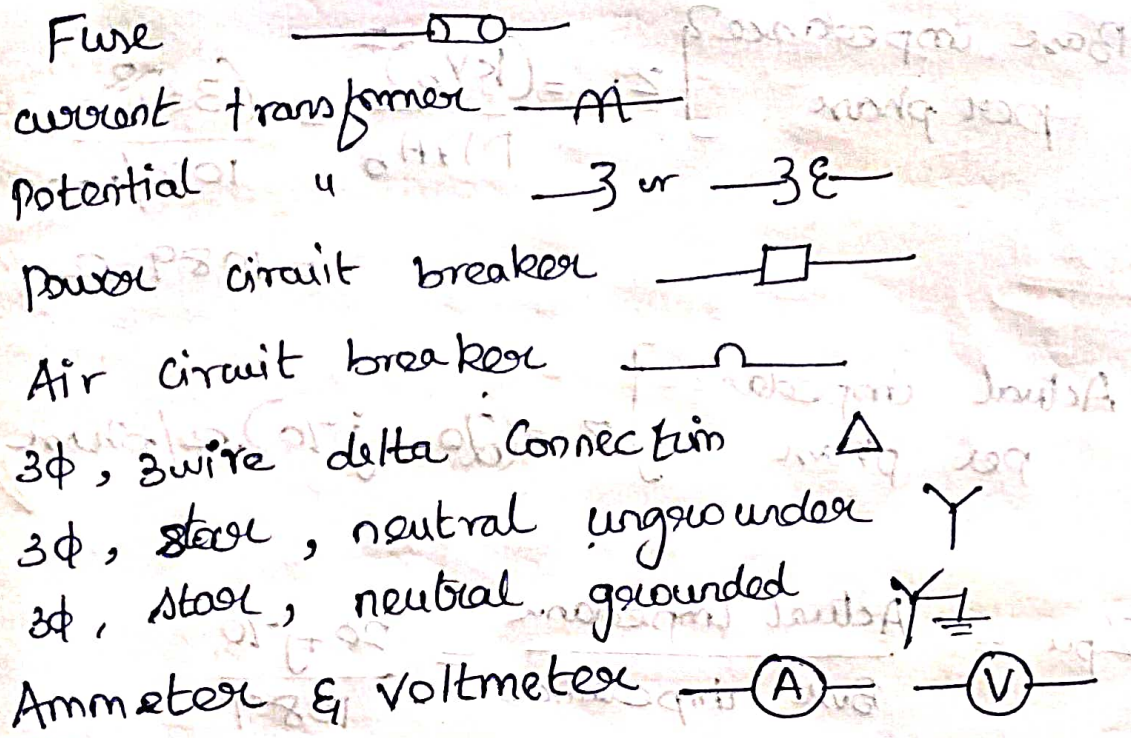 Fuse
current transformer
potential "
or
Power circuit breaker
Air circuit breaker
3ϕ, 3wire delta Connection Δ
3ϕ, star, neutral ungrounder
3ϕ, star, neutral grounded
Ammeter & Voltmeter A V